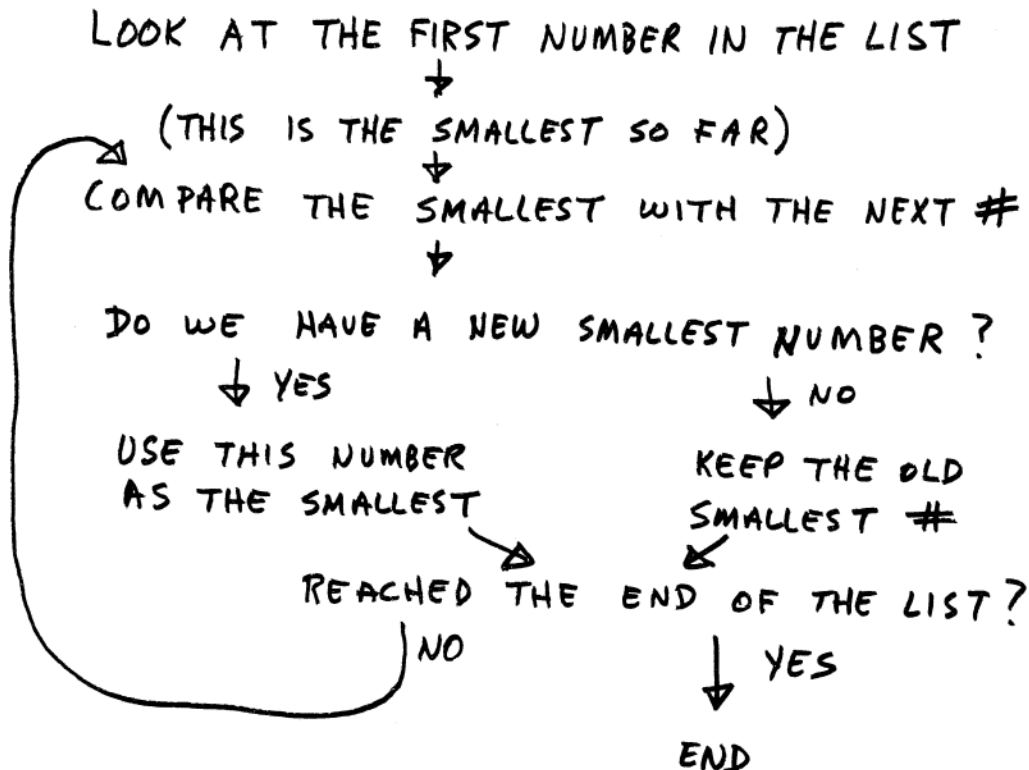 LOOK AT THE FIRST NUMBER IN THE LIST
(THIS IS THE SMALLEST SO FAR)
COMPARE THE SMALLEST WITH THE NEXT #
DO WE HAVE A NEW SMALLEST NUMBER?
YES
NO
USE THIS NUMBER
AS THE SMALLEST
KEEP THE OLD
SMALLEST #
REACHED THE END OF THE LIST?
NO
YES
END